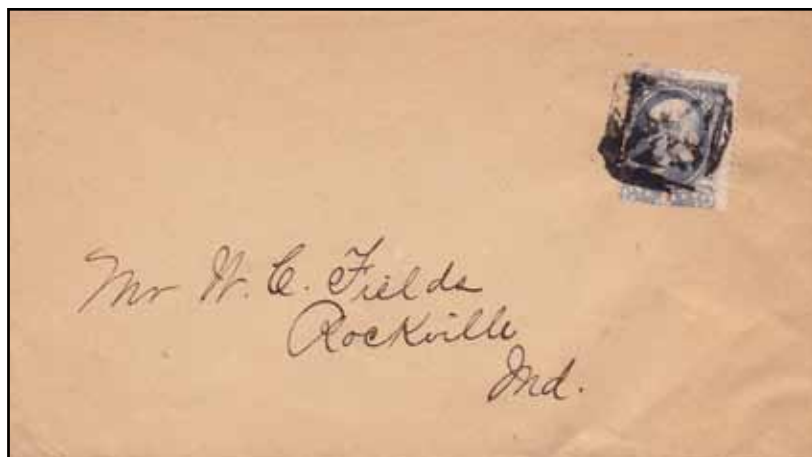 Mr W. C. Fields
Rockville
Ind.